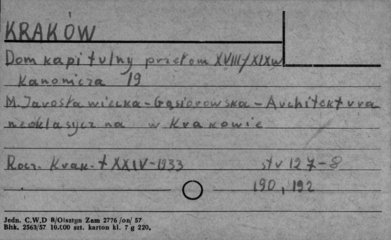 KRAKÓW
Dom kapitulny przełom XVIII/XIXw
Kanonicza 19
M. Jarosławiecka-Gąsiorowska - Architektura
neoklasyczna w Krakowie
Rocz. Krak. t XXIV-1933 str 127-8
190, 192
Jedn. C.W.D 8/Olsztyn Zam 2776/on/ 57
Bhk. 2563/57 10.000 szt. karton kl. 7 g 220.